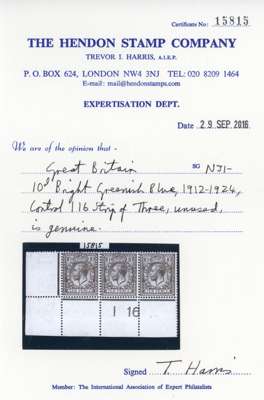 Certificate No: 15815
THE HENDON STAMP COMPANY
TREVOR I. HARRIS, A.I.E.P.
P. O. BOX 624, LONDON NW4 3NJ TEL: 020 8209 1464
E-mail: mail@hendonstamps.com
EXPERTISATION DEPT.
Date 29 SEP 2016
We are of the opinion that -
Great Britain SG N31-
10d Bright Greenish Blue, 1912-1924,
Control I 16 Strip of Three, unused,
is genuine.
15815
I 16
Signed T. Harris
Member: The International Association of Expert Philatelists